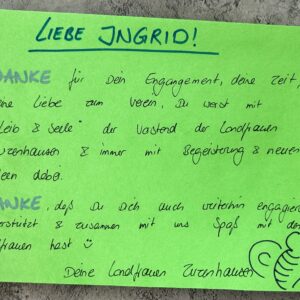 LIEBE INGRID!
DANKE für Dein Engangement, deine Zeit,
deine Liebe zum Verein. Du warst mit
"Leib & Seele" der Vorstand der Landfrauen
Zuzenhausen & immer mit Begeisterung & neuen
Ideen dabei.
DANKE, daß Du Dich auch weiterhin engagierst,
unterstützt & zusammen mit uns Spaß mit den
Landfrauen hast
Deine Landfrauen Zuzenhausen